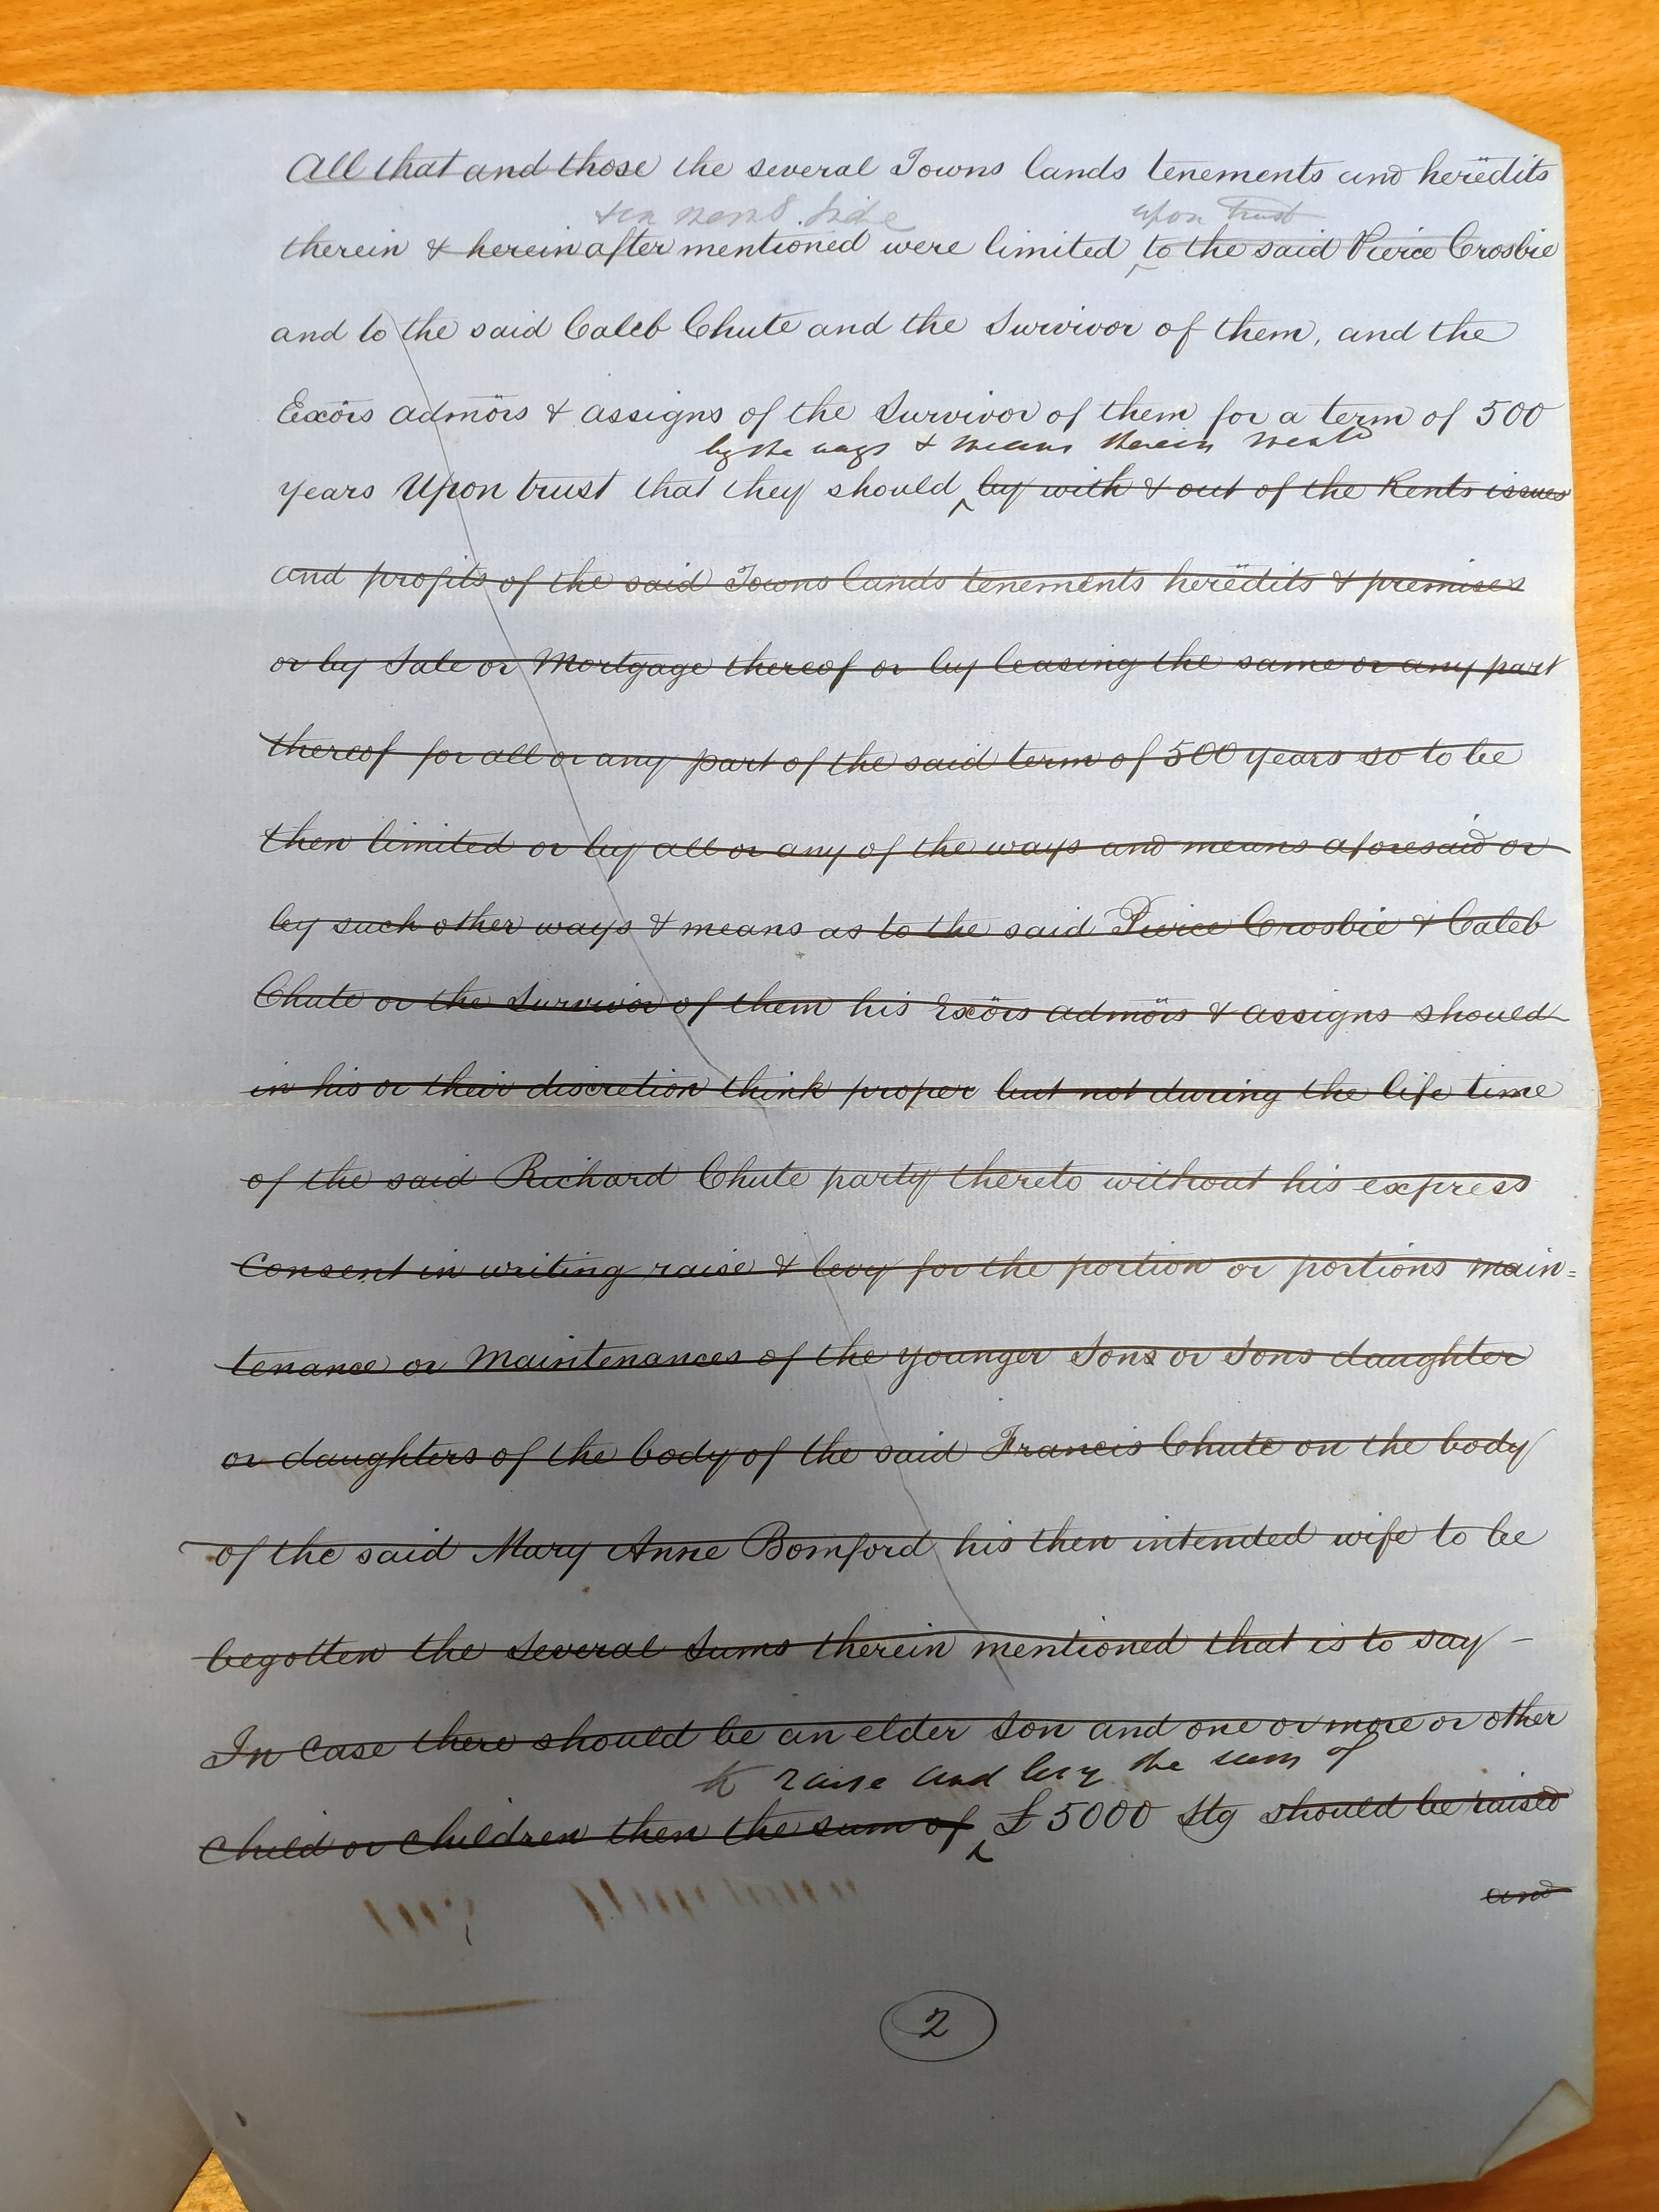 All that and those the several Towns lands tenements and heredits
upon trust
therein & herein after mentioned were limited to the said Pierce Crosbie
and to the said Caleb Chute and the Survivor of them, and the
Exörs admörs & assigns of the Survivor of them for a term of 500
by the ways & means therein ment^d
years Upon trust that they should by with & out of the Rents issues
and profits of the said Towns lands tenements heredits & premises
or by Sale or Mortgage thereof or by leasing the same or any part
thereof for all or any part of the said term of 500 years so to be
then limited or by all or any of the ways and means aforesaid or
by such other ways & means as to the said Pierce Crosbie & Caleb
Chute or the Survivor of them his Exörs admörs & assigns should
in his or their discretion think proper but not during the life time
of the said Richard Chute party thereto without his express
Consent in writing raise & levy for the portion or portions main=
tenance or Maintenances of the younger Sons or Sons daughter
or daughters of the body of the said Francis Chute on the body
of the said Mary Anne Bomford his then intended wife to be
begotten the Several Sums therein mentioned that is to say –
In Case there should be an elder Son and one or more or other
to raise and levy the sum of
Child or Children then the sum of £5000 Stg should be raised
and
2